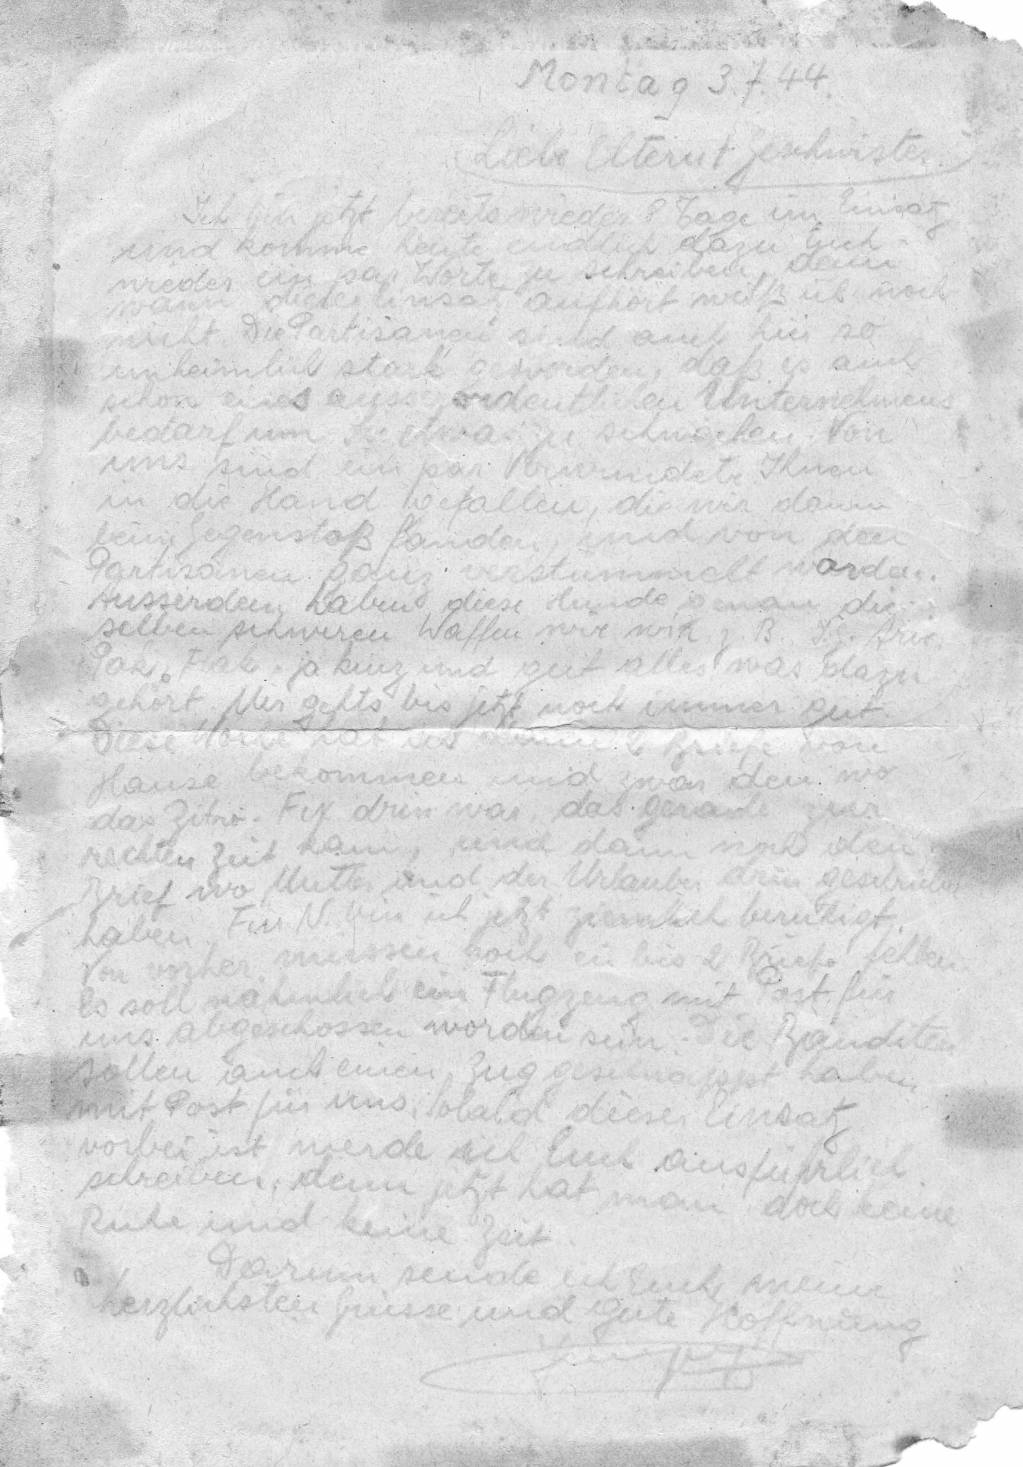 Montag 3.7.44.
Liebe Eltern u Geschwister.
Ich bin jetzt bereits wieder 8 Tage im Einsatz
und komme heute endlich dazu Euch
wieder ein par Worte zu schreiben, denn
wann dieser Einsatz aufhört weiß ich noch
nicht. Die Partisanen sind auch hier so
unheimlich stark geworden, daß es auch
schon eines ausserordentlichen Unternehmens
bedarf um sie etwas zu schwächen. Von
uns sind ein par Verwundete Ihnen
in die Hand gefallen, die wir dann
beim Gegenstoß fanden, und von den
Partisanen ganz verstummelt worden.
Ausserdem haben diese Hunde genau die
selben schweren Waffen wie wir z. B. Art.
Pak, Flak, ja kurz und gut alles was dazu
gehört. Mir gehts bis jetzt noch immer gut.
Diese Woche hab ich 2 Briefe von
Hause bekommen und zwar den wo
das Zitro-Fix drin war, das gerade zur
rechten Zeit kam, und dann noch den
Brief wo Mutter und der Urlauber drin geschrieben
haben. Für N. bin ich jetzt ziemlich beruhigt.
Von vorher müssen noch ein bis 2 Briefe fehlen.
Es soll nähmlich ein Flugzeug mit Post für
uns abgeschossen worden sein. Die Banditen
sollen auch einen Zug geschnappt haben
mit Post für uns. Sobald dieser Einsatz
vorbei ist werde ich Euch ausführlich
schreiben, denn jetzt hat man doch keine
Ruhe und keine Zeit.
Darum sende ich Euch meine
herzlichsten Grüsse und gute Hoffnung